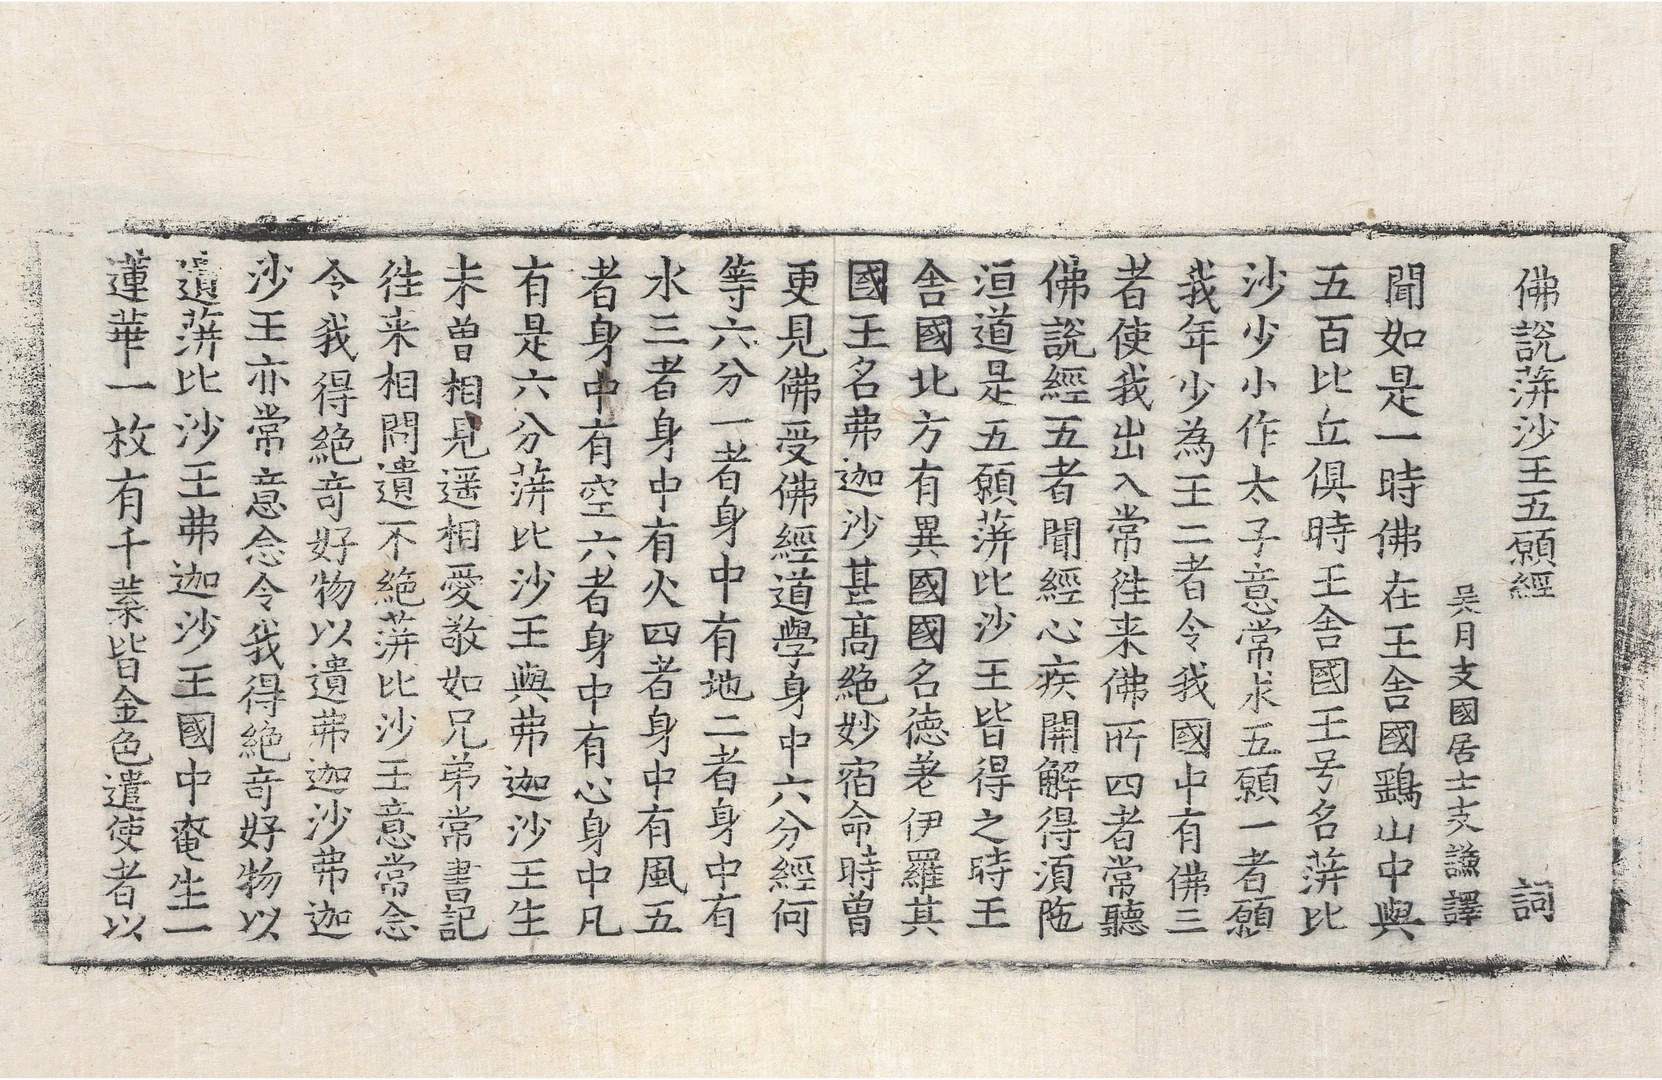 佛說蓱沙王五願經 詞
吳月支國居士支謙譯
聞如是一時佛在王舍國鷄山中與
五百比丘俱時王舍國王号名蓱比
沙少小作太子意常求五願一者願
我年少為王二者令我國中有佛三
者使我出入常往来佛所四者常聽
佛說經五者聞經心疾開解得湏陁
洹道是五願蓱比沙王皆得之時王
舍國北方有異國國名德差伊羅其
國王名弗迦沙甚髙絶妙宿命時曽
更見佛受佛經道學身中六分經何
等六分一者身中有地二者身中有
水三者身中有火四者身中有風五
者身中有空六者身中有心身中凡
有是六分蓱比沙王與弗迦沙王生
未曽相見遥相愛敬如兄弟常書記
往来相問遺不絶蓱比沙王意常念
令我得絶竒好物以遺弗迦沙弗迦
沙王亦常意念令我得絶竒好物以
遺蓱比沙王弗迦沙王國中奄生一
蓮華一枚有千葉皆金色遣使者以